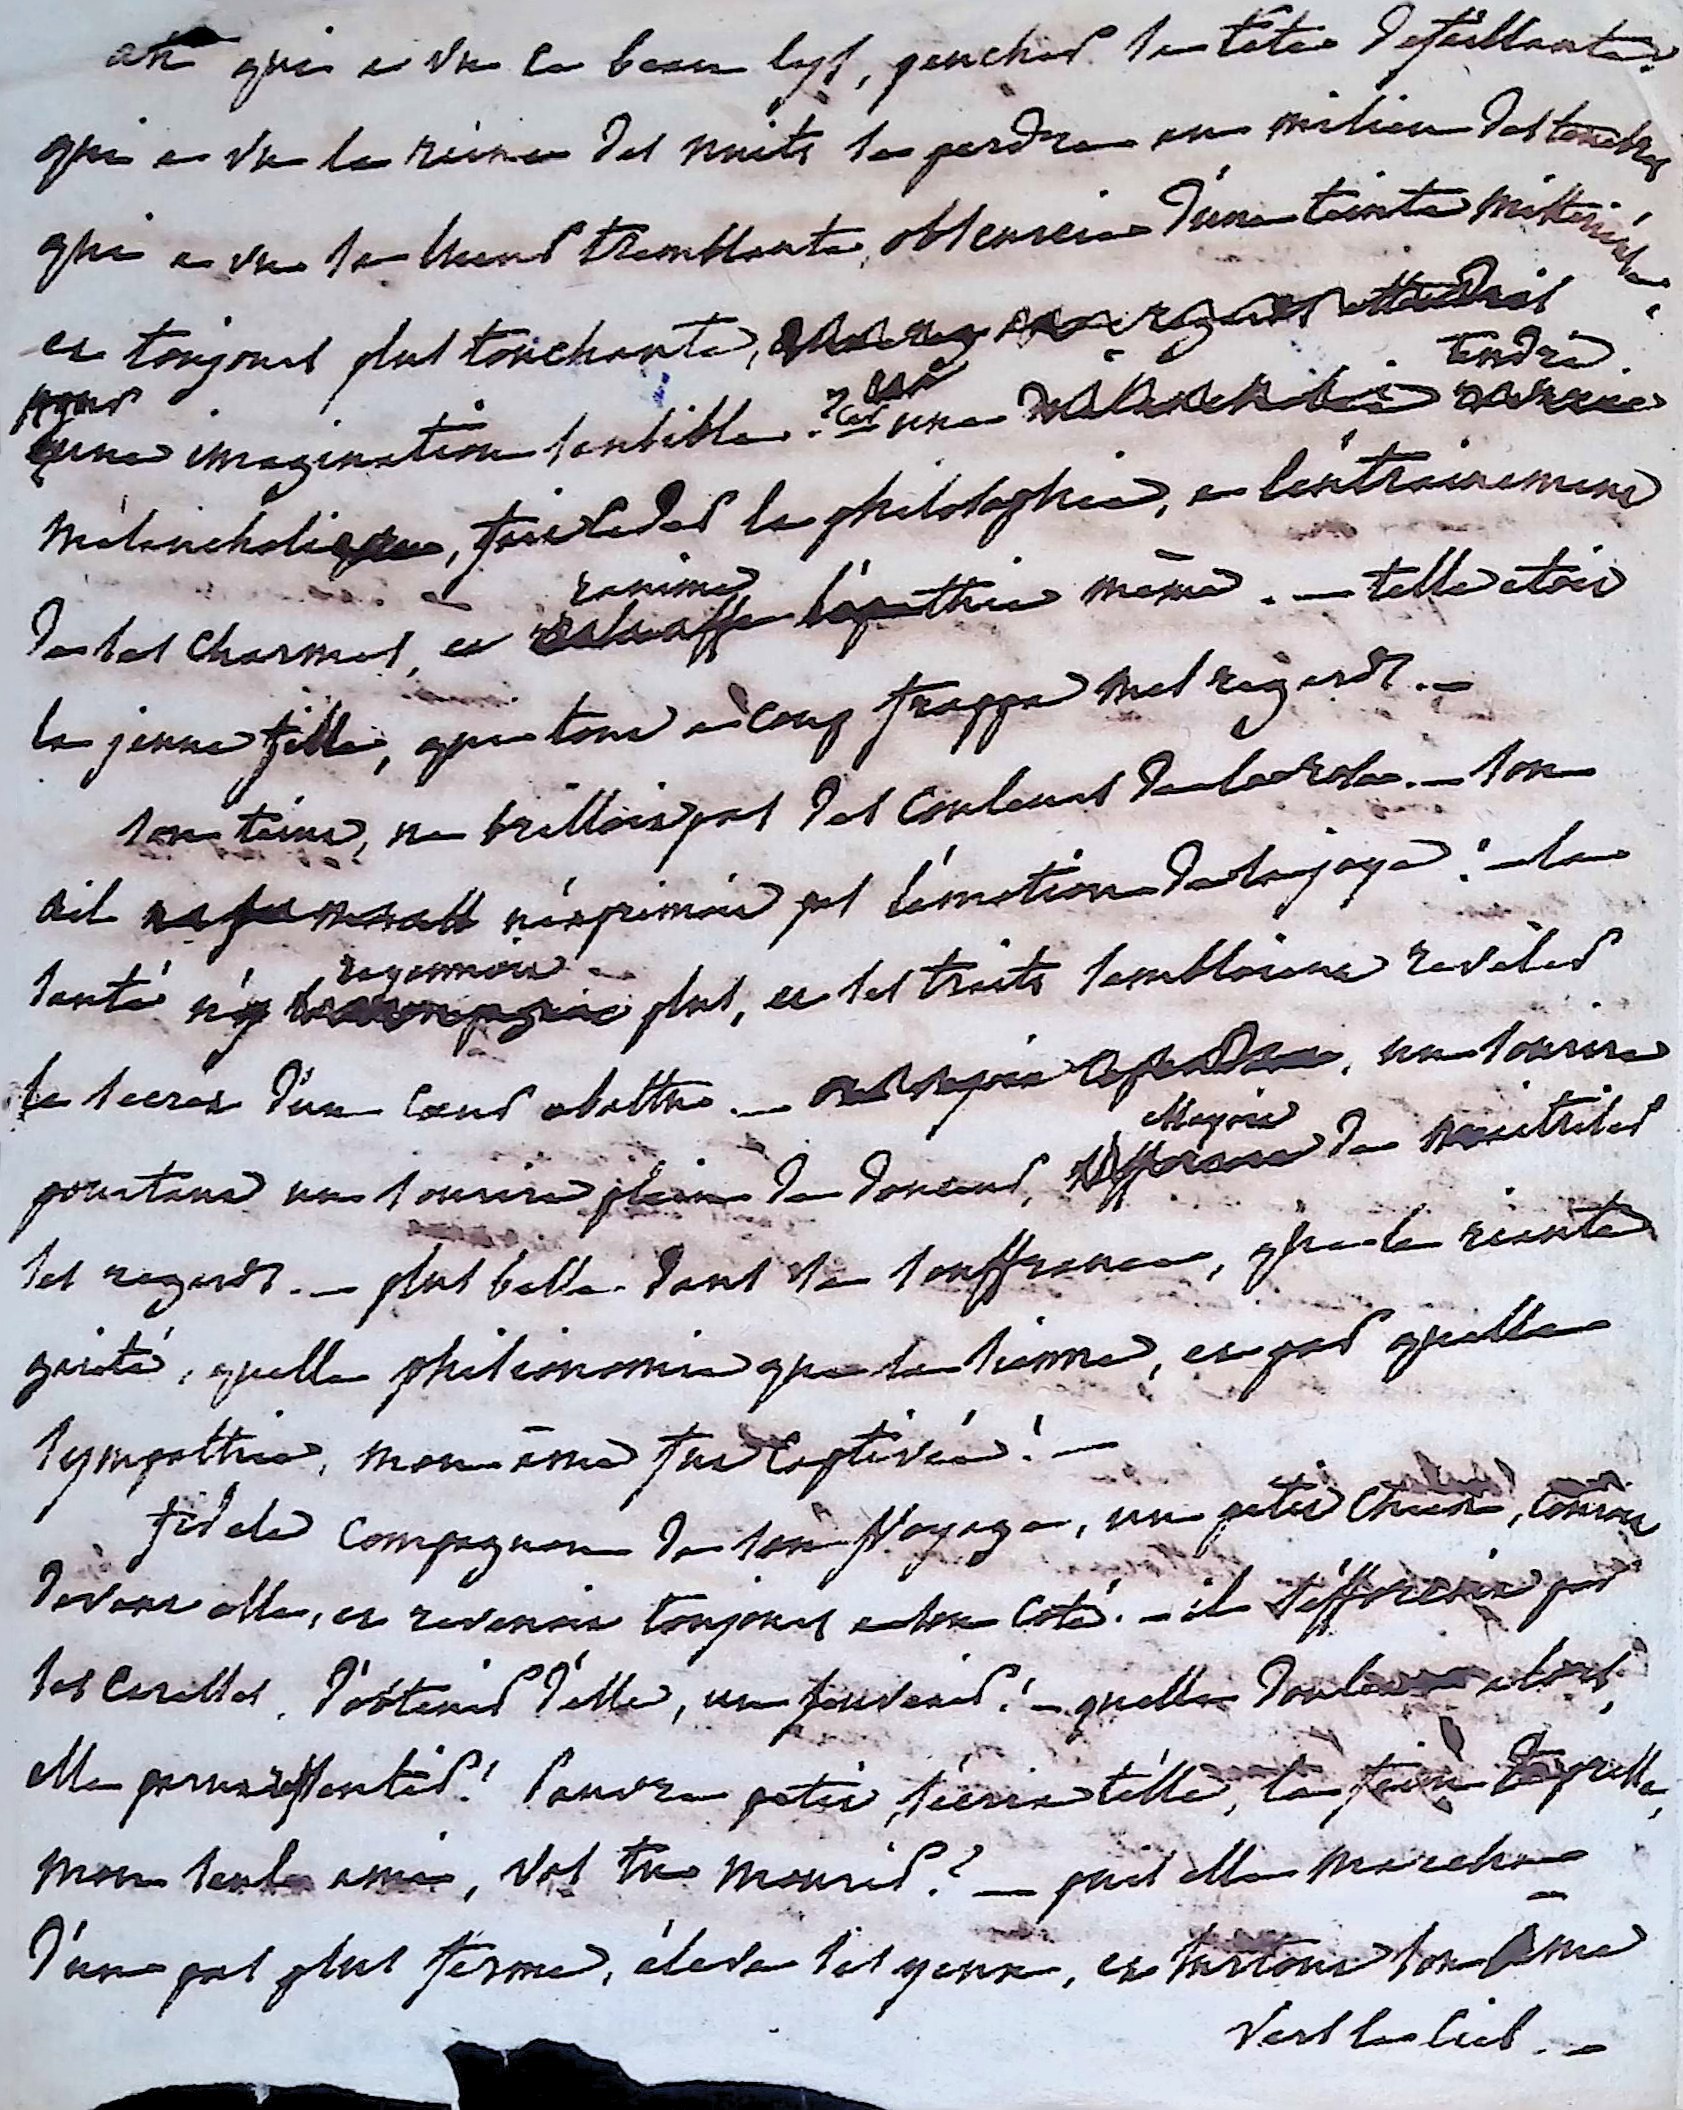 ah qui a vu ce beau lys, pencher sa tête defaillante?
qui a vu la reine des nuits se perdre au milieu des tenebres
qui a vu sa lueur tremblante, obscurcie d'une teinte mistérieuse,
et toujours plus touchante,
tendre
pour
une imagination sensible? car une
mélancholique, fait ceder la philosophie, a l'entrainement
ranime
de ses charmes, et l'apathie même. — telle etoit
la jeune fille, que tout a coup frappa mes regards. —
son teint, ne brilloit pas des couleurs de la rose. — son
œil n'exprimoit pas l'émotion de la joye! — la
rayonnoit
santé n'y plus, et ses traits sembloient reveler
le secret d'un cœur abattu. — un sourire
essayoit
pourtant un sourire plein de douceur, de
ses regards. — plus belle dans sa souffrance, que la riante
gaieté, quelle phisionomie que la sienne, et par quelle
sympathie, mon âme fut captivée! —
fidele compagnon de son voyage, un petit chien, couroit
devant elle, et revenoit toujours a son coté. — il s'efforcoit par
ses caresses, d'obtenir d'elle, un souvenir! — quelle douleur alors,
elle parut ressentir! Pauvre petit, s'écria t'elle, ta faim
mon seul ami, vas tu mourir? — puis elle marcha
d'un pas plus ferme, éleva ses yeux, et surtout son âme
vers le ciel. —